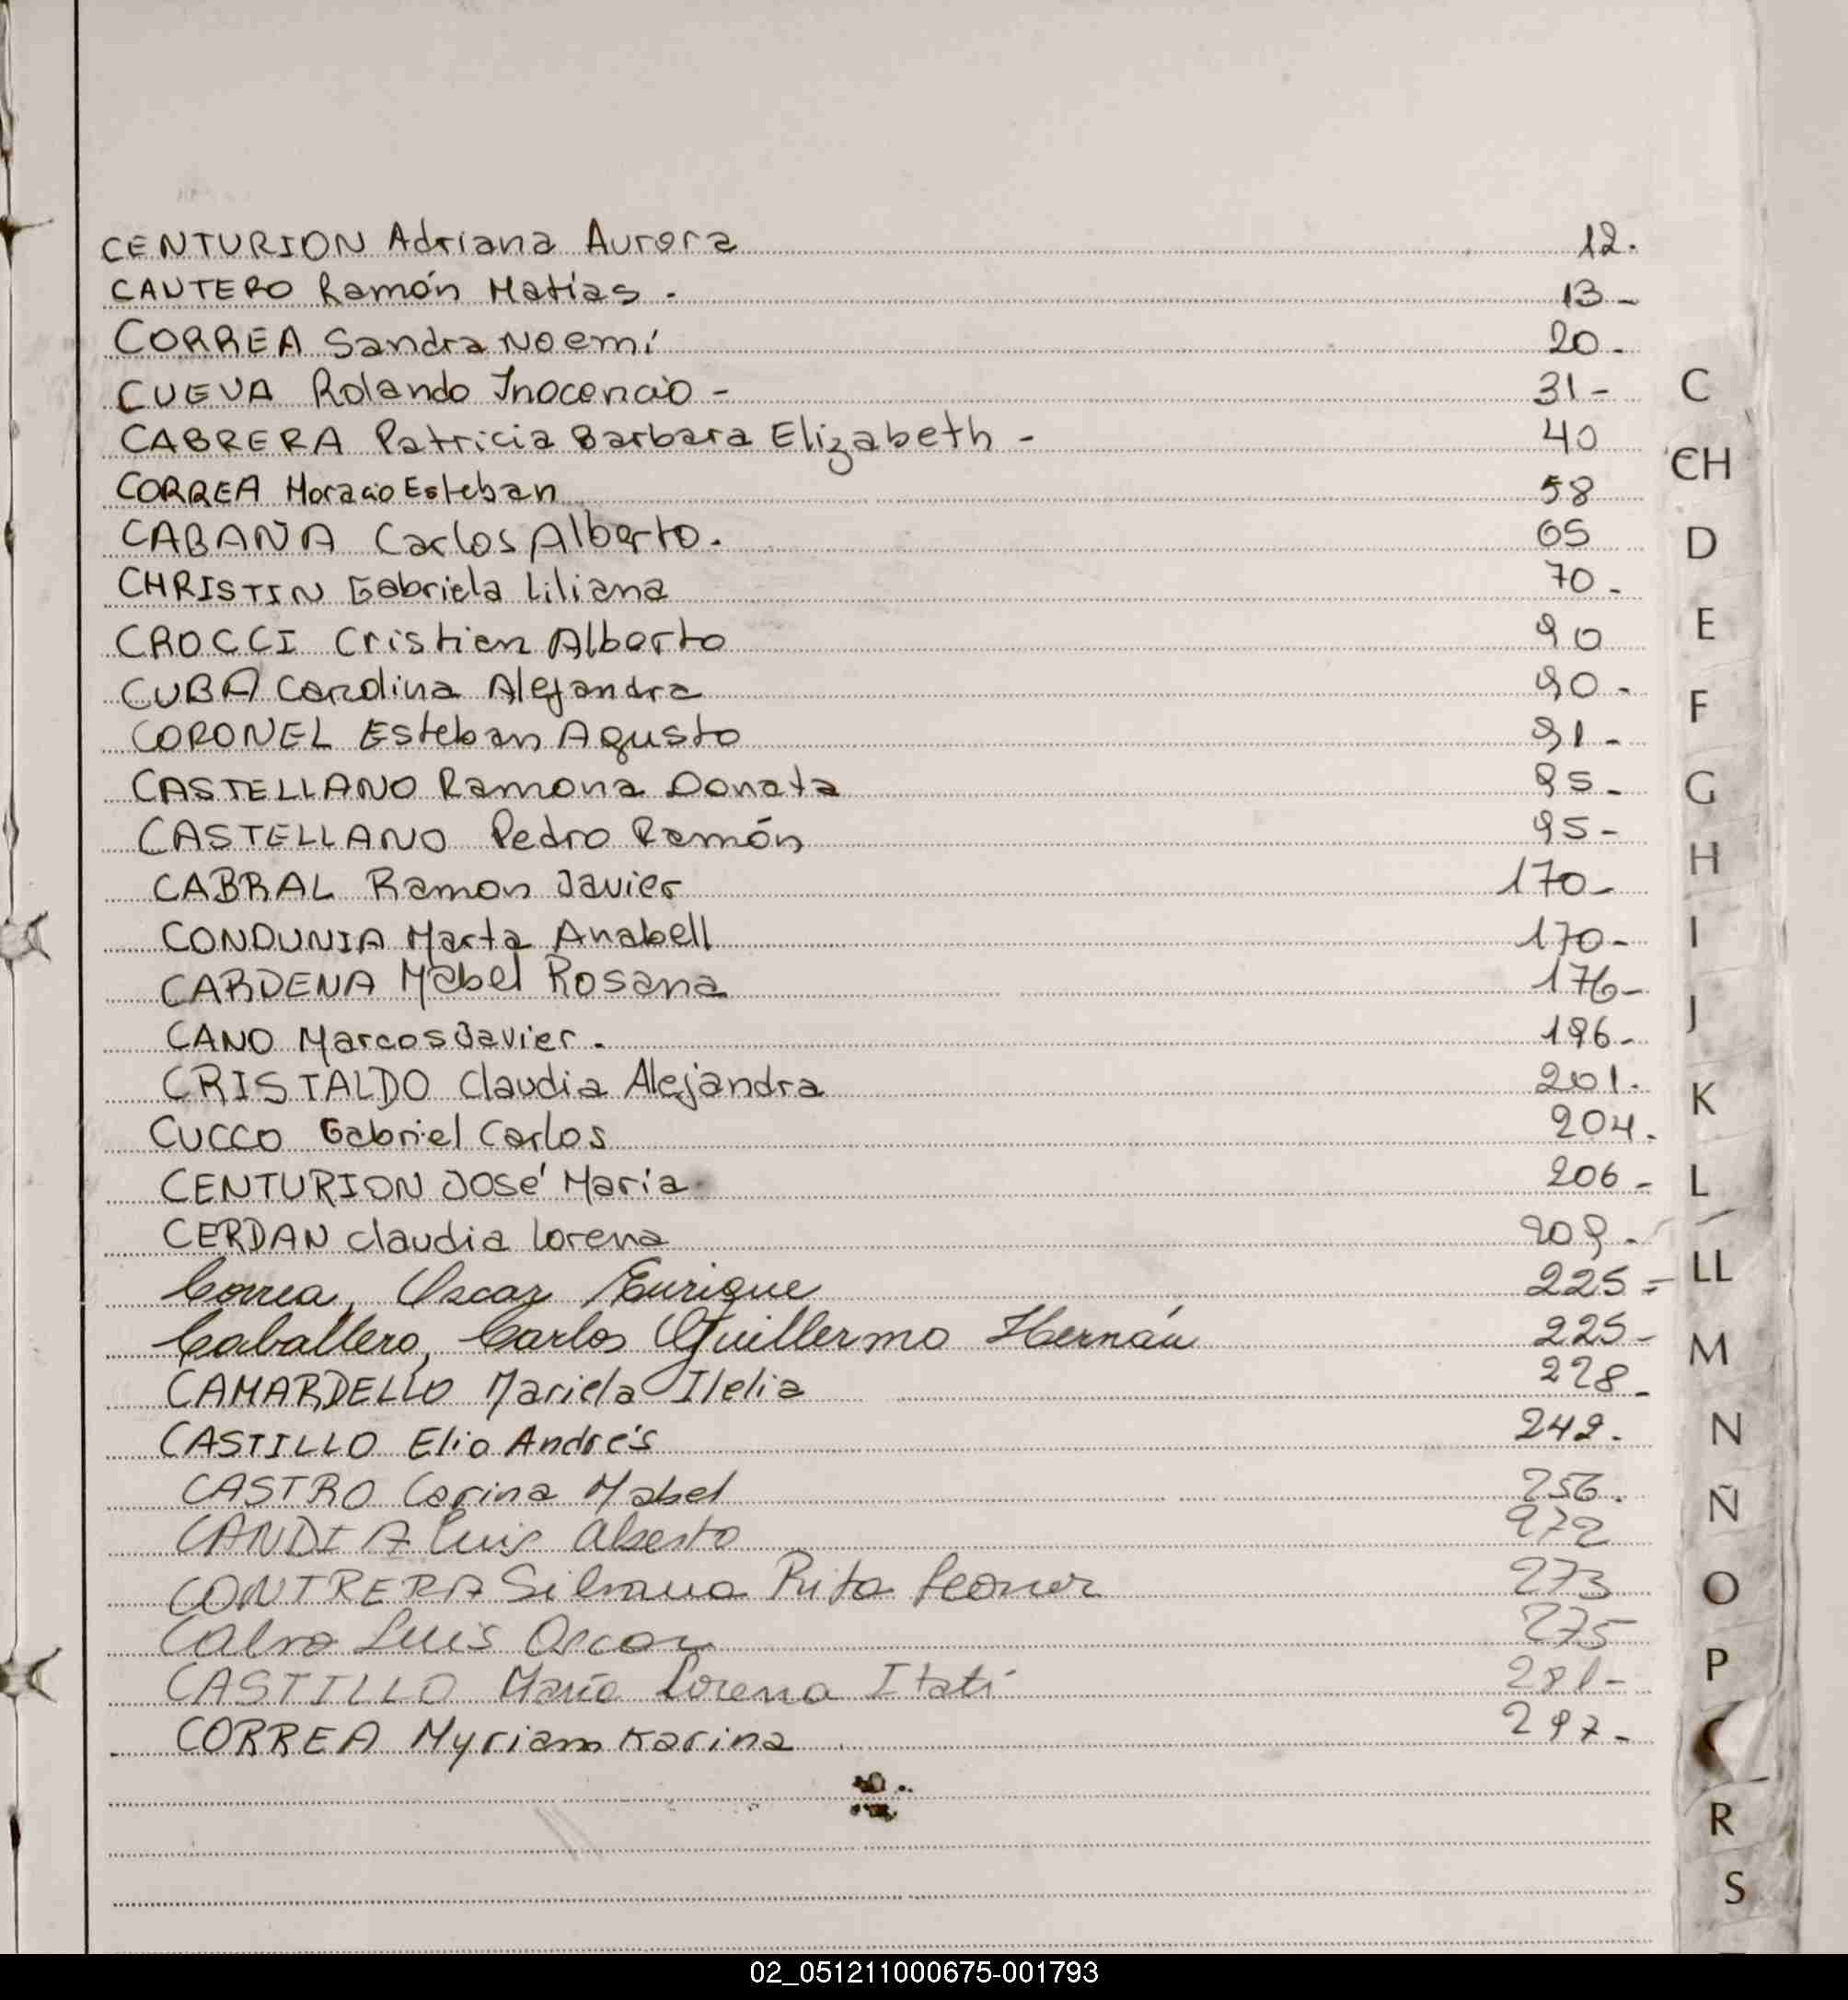 CENTURION Adriana Aurora 12.
CAUTERO Ramón Matías - 13 -
CORREA Sandra Noemí 20 -
CUEVA Rolando Inocencio - 31 -
CABRERA Patricia Barbara Elizabeth - 40
CORREA Horacio Esteban 58
CABAÑA Carlos Alberto. 65
CHRISTIN Gabriela Liliana 70 -
CROCCI Cristian Alberto 90
CUBA Carolina Alejandra 90 -
CORONEL Esteban Agusto 91 -
CASTELLANO Ramona Donata 95 -
CASTELLANO Pedro Ramón 95 -
CABRAL Ramon Javier 170 -
CONDUNIA Marta Anabell 170 -
CARDENA Mabel Rosana 176 -
CANO Marcos Javier - 196 -
CRISTALDO Claudia Alejandra 201.
CUCCO Gabriel Carlos 204.
CENTURION José María 206 -
CERDAN Claudia Lorena 209 -
Correa, Oscar Enrique 225 =
Caballero, Carlos Guillermo Hernán 225 -
CAMARDELLO Mariela Ilelia 228 -
CASTILLO Elio Andrés 242.
CASTRO Carina Mabel 256.
CANDIA Luis Alberto 272
CONTRERA Silvana Rita Leonor 273
Calvo Luis Oscar 275
CASTILLO María Lorena Itatí 281 -
CORREA Myriam Karina 297 -
C
CH
D
E
F
G
H
I
J
K
L
LL
M
N
Ñ
O
P
R
S
02_051211000675-001793